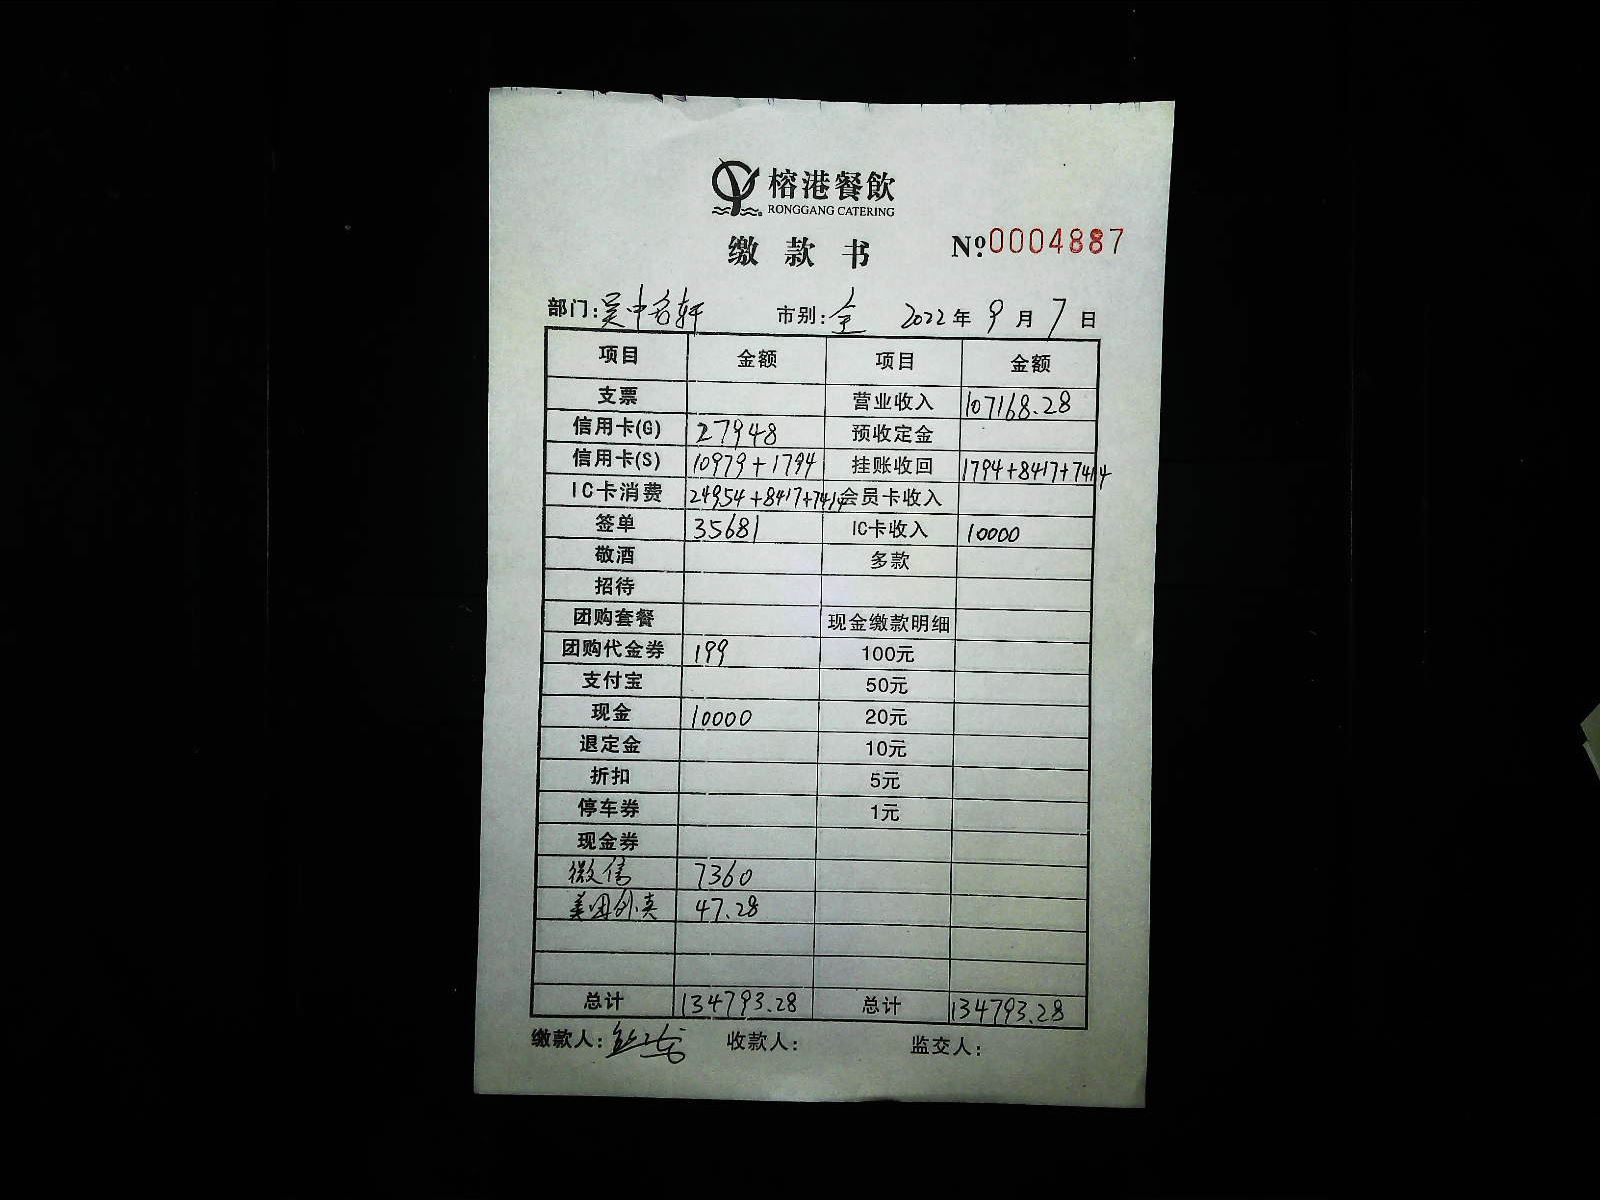 榕港餐飲
RONGGANG CATERING
缴款书 №.0004887
部门:吴中名轩 市别:全 2022年9月7日
项目 金额 项目 金额
支票 营业收入 107168.28
信用卡(G) 27948 预收定金
信用卡(S) 10979+1794 挂账收回 1794+8417+7414
IC卡消费 24954+8417+7414 会员卡收入
签单 35681 IC卡收入 10000
敬酒 多款
招待
团购套餐 现金缴款明细
团购代金券 199 100元
支付宝 50元
现金 10000 20元
退定金 10元
折扣 5元
停车券 1元
现金券
微信 7360
美团外卖 47.28
总计 134793.28 总计 134793.28
缴款人: 收款人: 监交人: